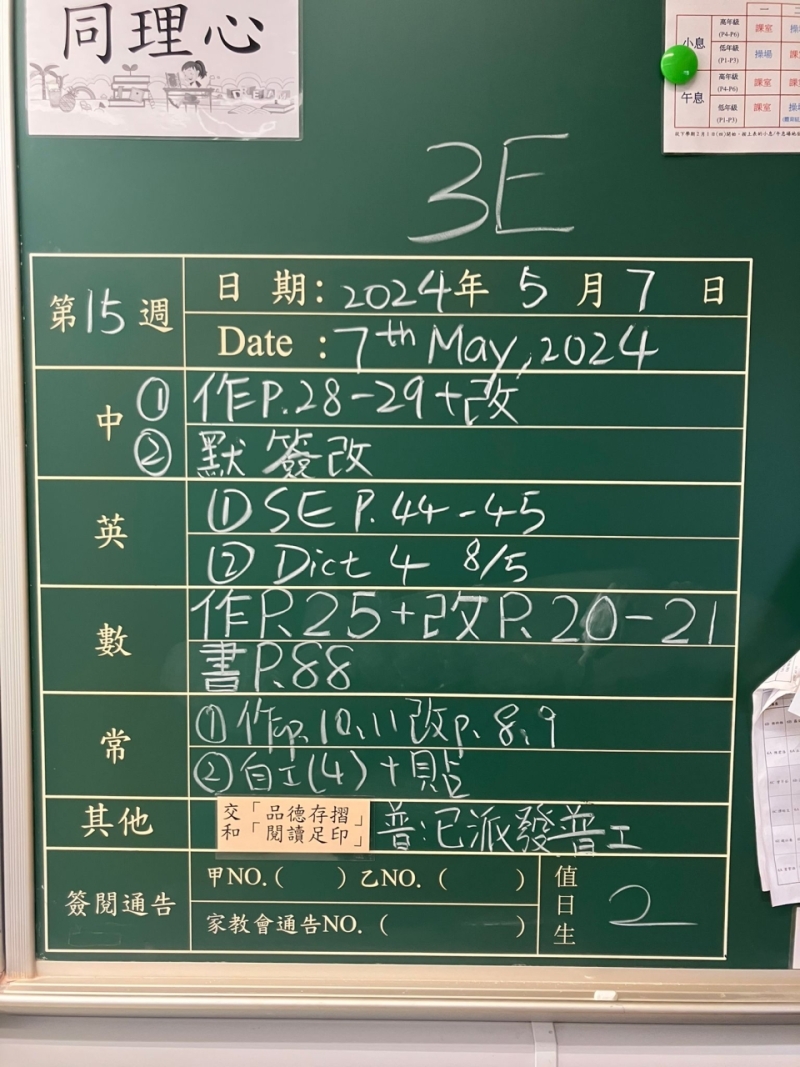 同理心
一 三
小息 高年級 (P4-P6) 課室
低年級 (P1-P3) 操場 課
午息 高年級 (P4-P6) 課室
低年級 (P1-P3) 課室 操場
3E
第15週 日期：2024年 5月 7日
Date : 7th May, 2024
中 ① 作P.28-29+改
② 默簽改
英 ① SE P.44-45
② Dict 4 8/5
數 作P.25+改P.20-21
書P.88
常 ① 作p.10,11改p.8,9
② 自工(4)+貼
其他 交「品德存摺」
和「閱讀足印」 普：已派發普工
簽閱通告 甲NO.( ) 乙NO.( )
家教會通告NO.( )
值日生 2